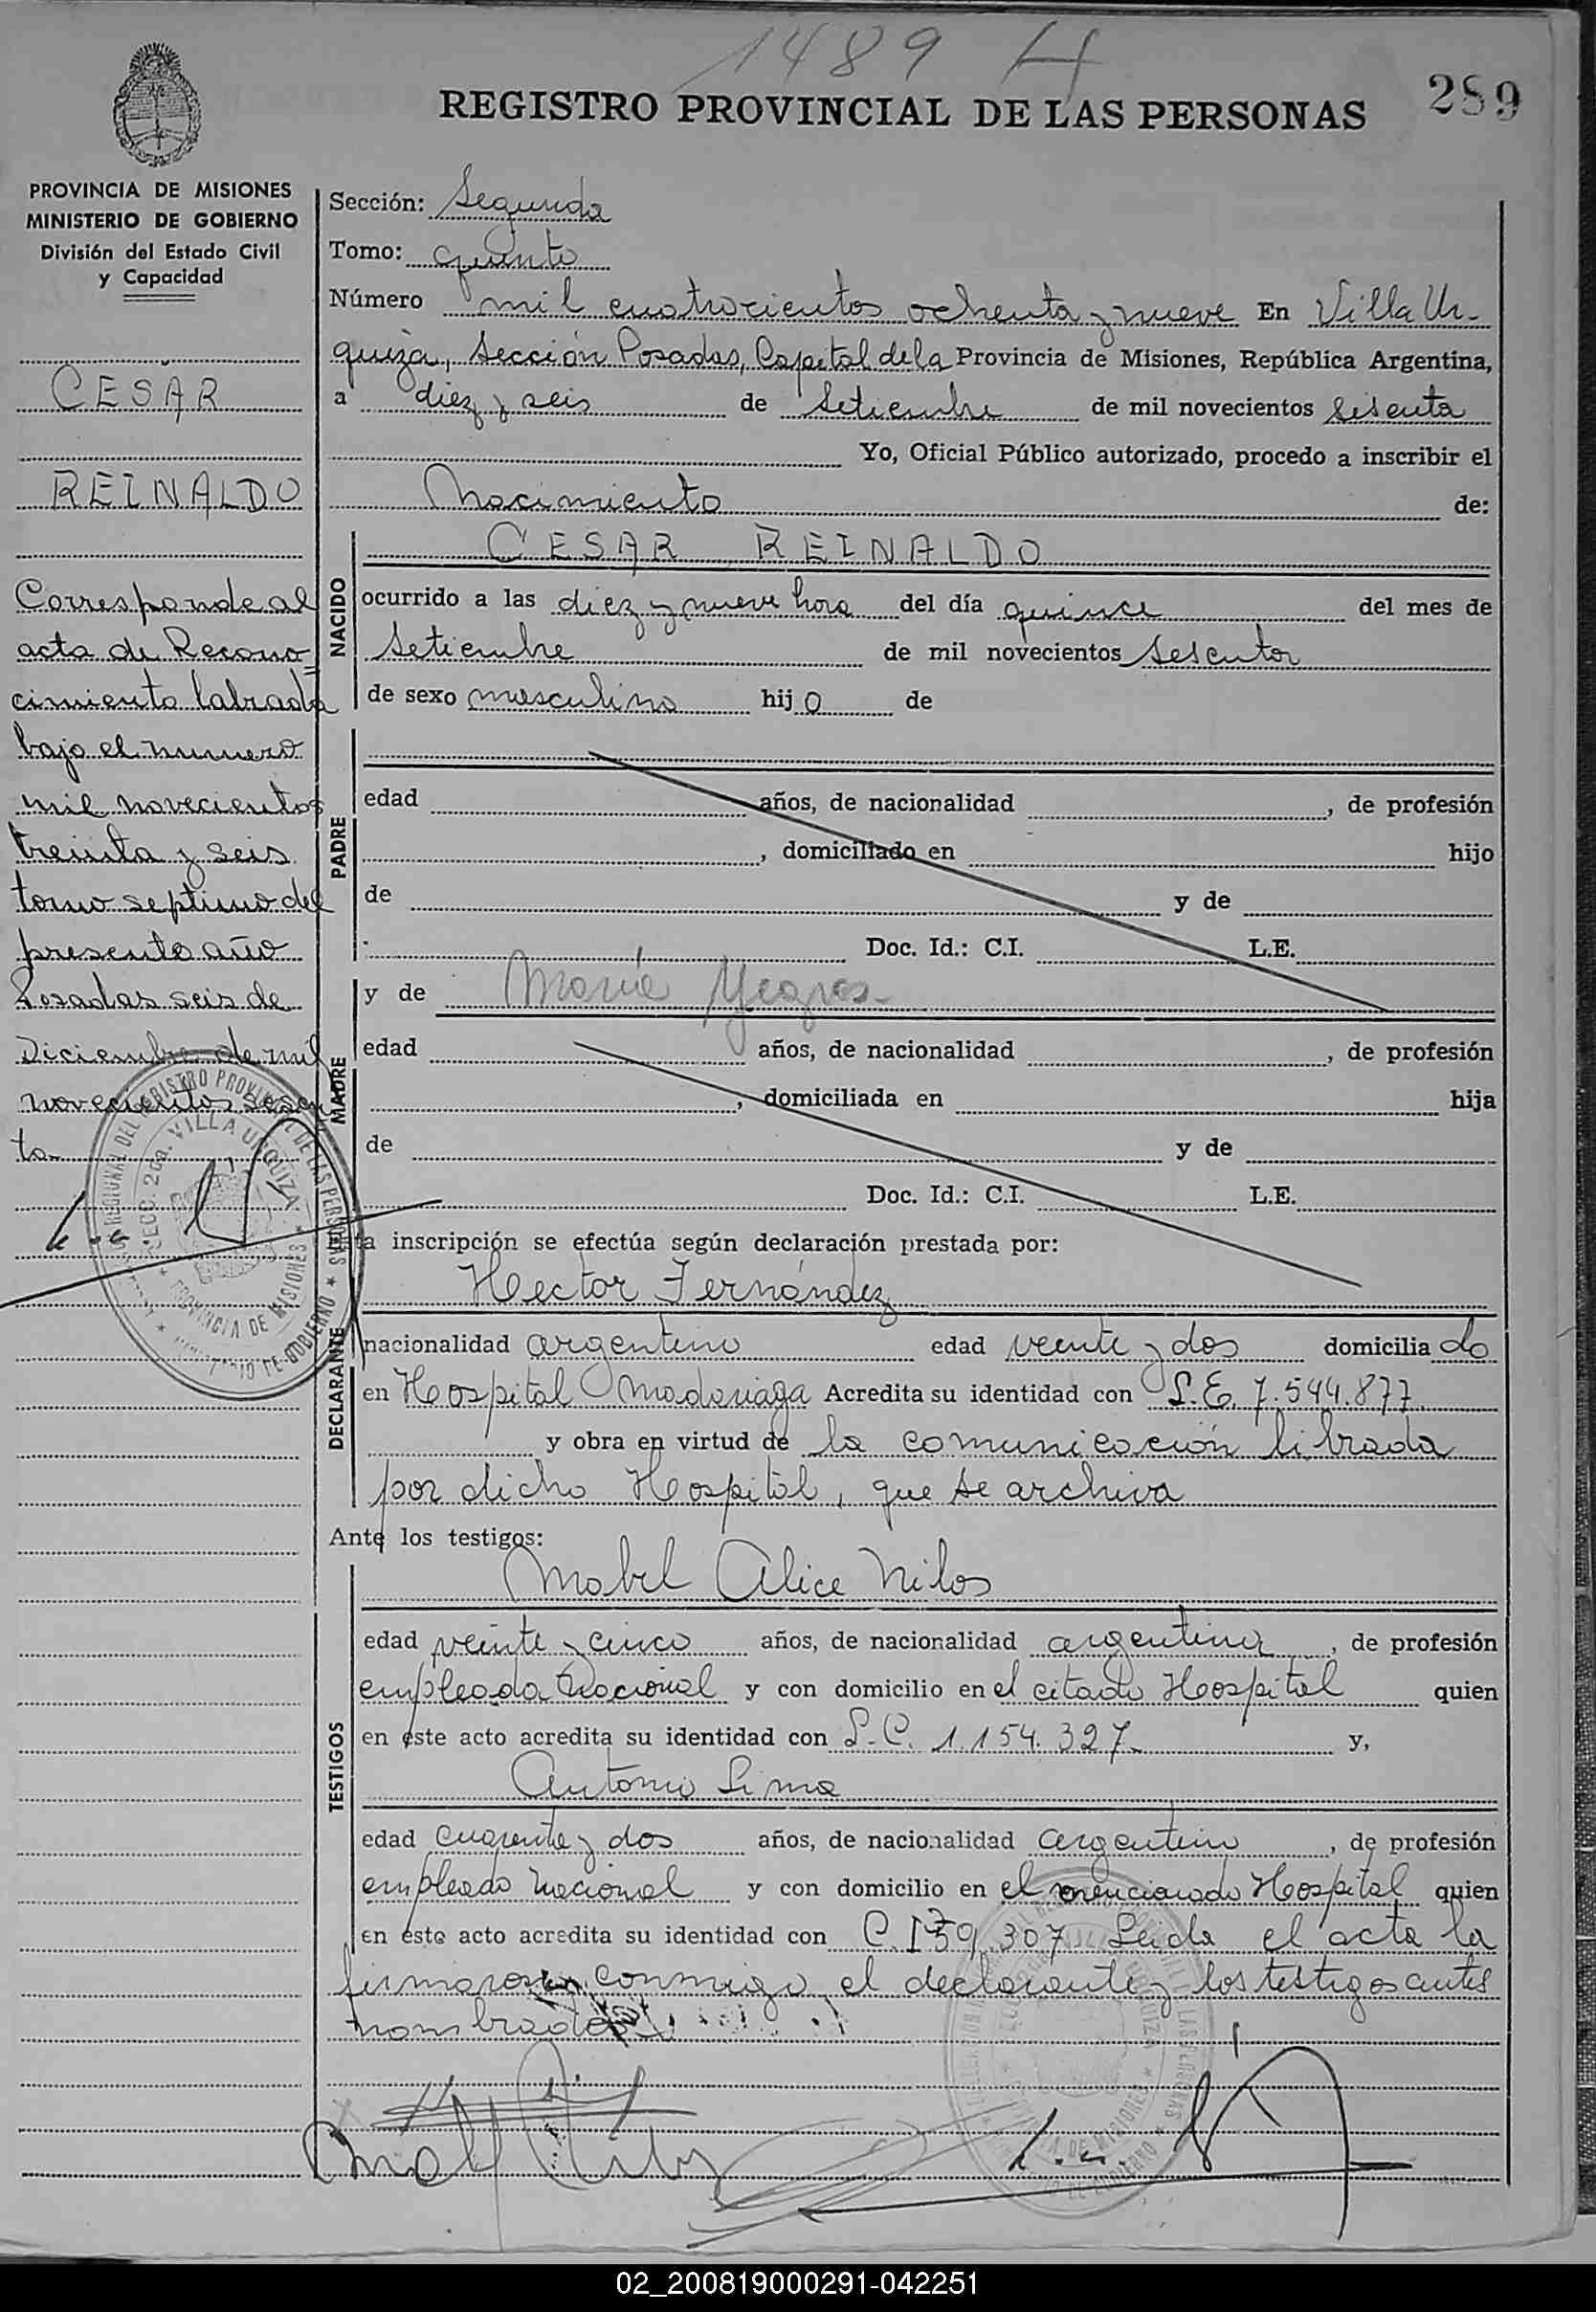 1489 H
289
REGISTRO PROVINCIAL DE LAS PERSONAS
PROVINCIA DE MISIONES
MINISTERIO DE GOBIERNO
División del Estado Civil
y Capacidad
CESAR
REINALDO
Corresponde al
acta de Recono
cimiento labrada
bajo el numero
mil novecientos
treinta y seis
tomo septimo del
presente año
Posadas seis de
Diciembre de mil
novecientos sesen
ta
Sección: Segunda
Tomo: quinto
Número mil cuatrocientos ochenta y nueve En Villa Ur-
quiza, Sección Posadas, Capital de la Provincia de Misiones, República Argentina,
a diez y seis de Setiembre de mil novecientos sesenta
Yo, Oficial Público autorizado, procedo a inscribir el
Nacimiento de:
NACIDO
CESAR REINALDO
ocurrido a las diez y nueve hora del día quince del mes de
Setiembre de mil novecientos sesenta
de sexo masculino hijo de
PADRE
edad años, de nacionalidad , de profesión
, domiciliado en hijo
de y de
Doc. Id.: C.I. L.E.
MADRE
y de María Yegros
edad años, de nacionalidad , de profesión
, domiciliada en hija
de y de
Doc. Id.: C.I. L.E.
ta inscripción se efectúa según declaración prestada por:
DECLARANTE
Hector Fernández
nacionalidad argentino edad veinte y dos domiciliado
en Hospital Madariaga Acredita su identidad con L.E. 7.544.877
y obra en virtud de la comunicación librada
por dicho Hospital, que se archiva
Ante los testigos:
TESTIGOS
Mabel Alice Nilos
edad veinte y cinco años, de nacionalidad argentina, de profesión
empleada Nacional y con domicilio en el citado Hospital quien
en este acto acredita su identidad con L.C. 1.154.327 y,
Antonio Lima
edad cuarenta y dos años, de nacionalidad argentino, de profesión
empleado Nacional y con domicilio en el mencionado Hospital quien
en este acto acredita su identidad con C.I 59.307 Leida el acta la
firmaron conmigo el declarante y los testigos antes
nombrados
02_200819000291-042251